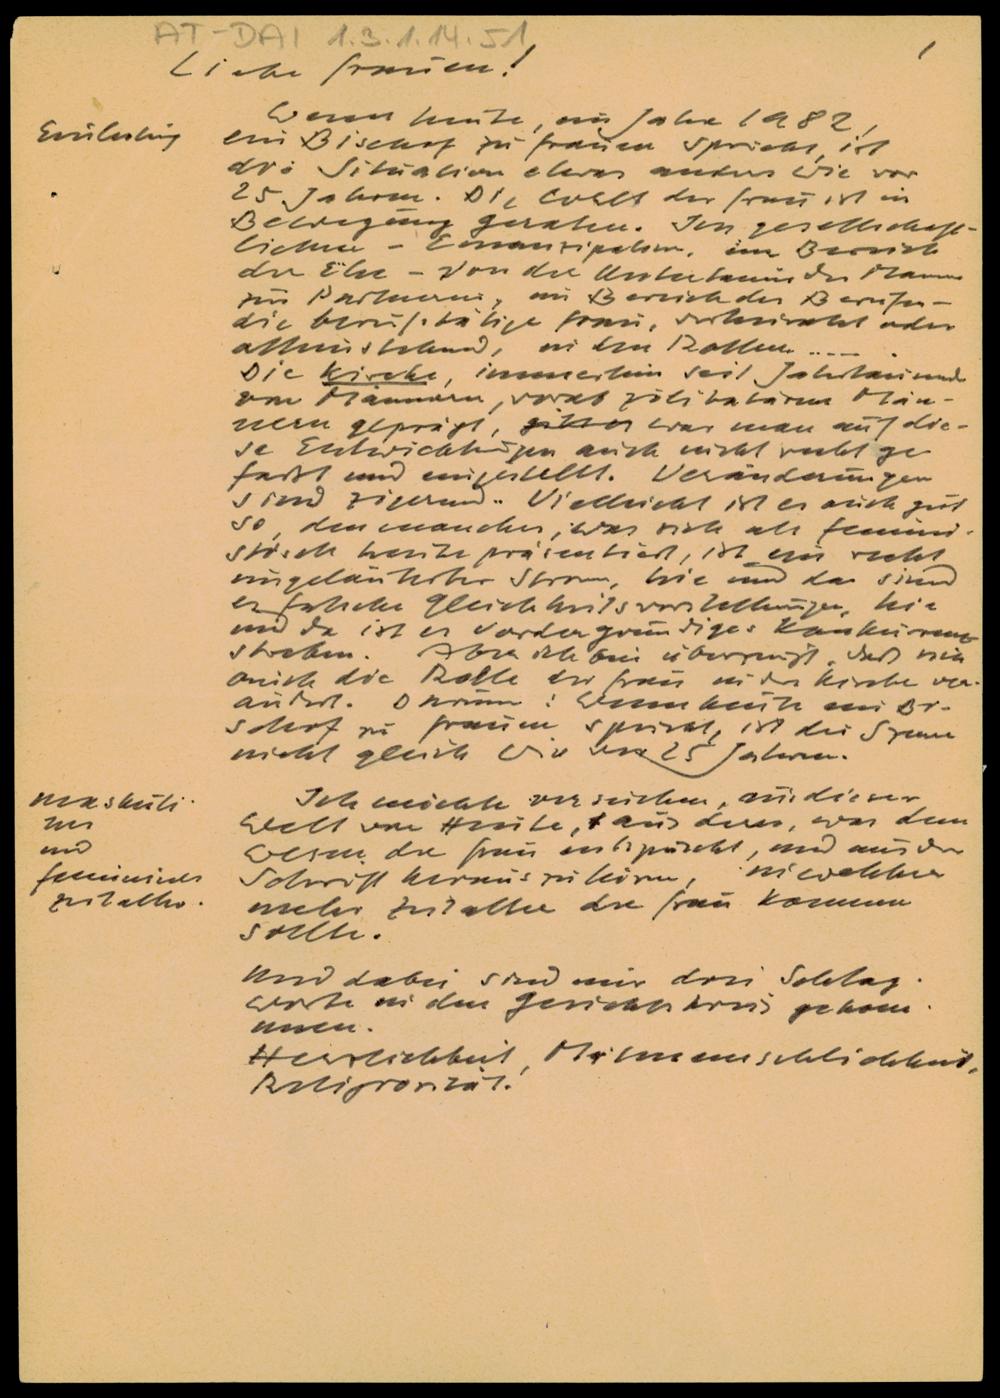 AT-DAI 1.3.1.14.51
1
Liebe Frauen!
Einleitung
Wenn heute, im Jahre 1982,
ein Bischof zu Frauen spricht, ist
die Situation etwas anders wie vor
25 Jahren. Die Welt der Frau ist in
Bewegung geraten. Im gesellschaft-
lichen - Emanzipation, im Bereich
der Ehe - von der des Mannes
zur Partnerin, im Bereich des Berufes -
die berufstätige Frau, verheiratet oder
alleinstehend, in den Rollen .....
Die Kirche, immerhin seit Jahrtausend
von Männern, zölibatären Män-
nern geprägt, war man auf die-
se Entwicklungen auch nicht recht ge
faßt und eingestellt. Veränderungen
sind zögernd.. Vielleicht ist es auch gut
so, denn manches, was sich als femini-
stisch heute präsentiert, ist ein recht
ungeläuterter Strom, hie und da sind
es falsche Gleichheitsvorstellungen, hie
und da ist es vordergründiges Konkurrenz
streben. Aber ich bin überzeugt, daß sich
auch die Rolle der Frau in der Kirche ver-
ändert. Darum: Wenn heute ein Bi-
schof zu Frauen spricht, ist die Szene
nicht gleich wie vor 25 Jahren.
maskuli-
nes
und
feminines
Zeitalter.
Ich möchte versuchen, aus dieser
Welt von Heute, aus dem, was dem
Wesen der Frau entspricht, und aus der
Schrift herauszuhören, in welcher
mehr Zeitalter der Frau kommen
sollte.
Und dabei sind mir drei Schlag-
worte in den Gesichtskreis gekom-
men.
Herzlichkeit, Mitmenschlichkeit,
Religiosität.